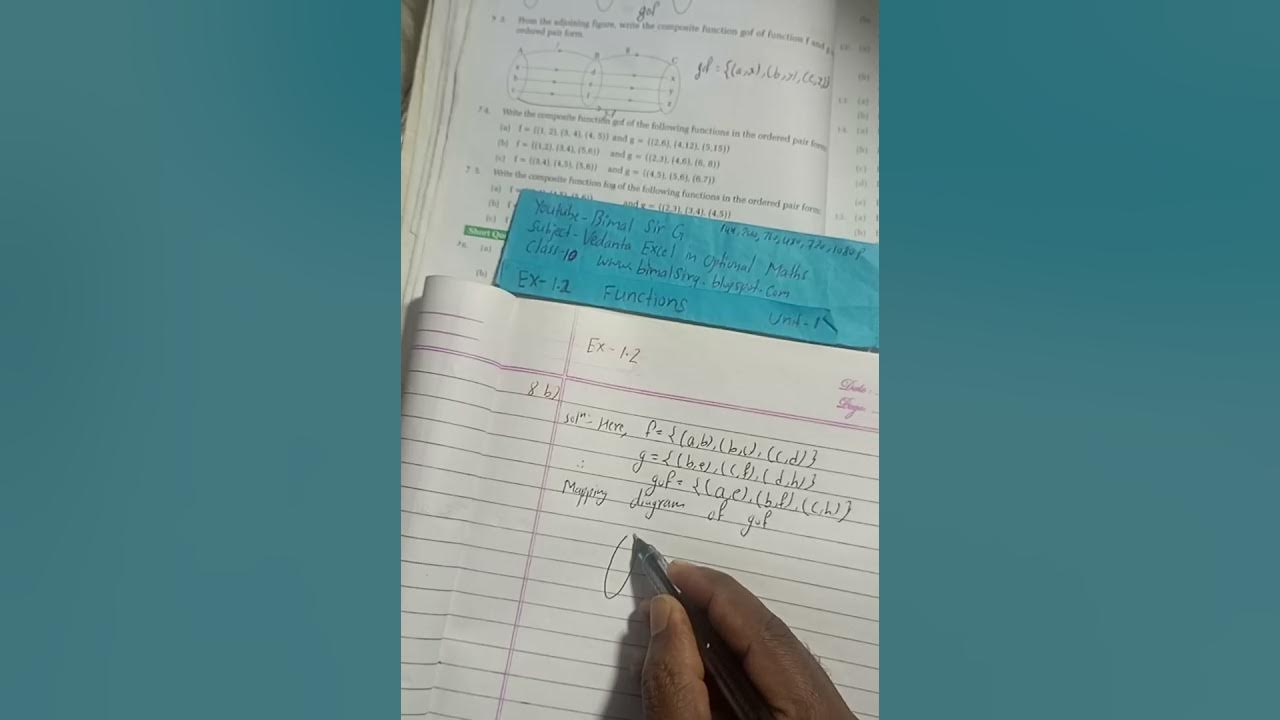 gof
From the adjoining figure, write the composite function gof of function f and g
ordered pair form.
gof = {(a,x),(b,y),(c,z)}
Write the composite function gof of the following functions in the ordered pair form
(a) f = {(1, 2), (3, 4), (4, 5)} and g = {(2,6), (4,12), (5,15)}
(b) f = {(1,2), (3,4), (5,6)} and g = {(2,3), (4,6), (6, 8)}
(c) f = {(3,4), (4,5), (5,6)} and g = {(4,5), (5,6), (6,7)}
Write the composite function fog of the following functions in the ordered pair form
(a) f = and g = {(2,3), (3,4), (4,5)}
(b) f
(c) f
Short Qu
(a)
(b)
Youtube - Bimal Sir G
Subject - Vedanta Excel in Optional Maths
Class-10 www.bimalsirg.blogspot.com
Ex-1.2 Functions Unit-1
Ex-1.2
Date
Page
8 b)
Solⁿ:- Here, f = {(a,b),(b,c),(c,d)}
g = {(b,e),(c,f),(d,h)}
∴ gof = {(a,e),(b,f),(c,h)}
Mapping diagram of gof